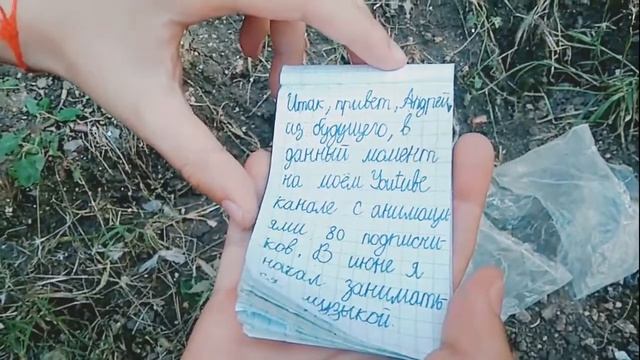 Итак, привет, Андрей
из будущего, в
данный момент
на моём Youtube
канале с анимаци
ями 80 подписчи
ков. В июне я
начал занимать
ся музыкой.